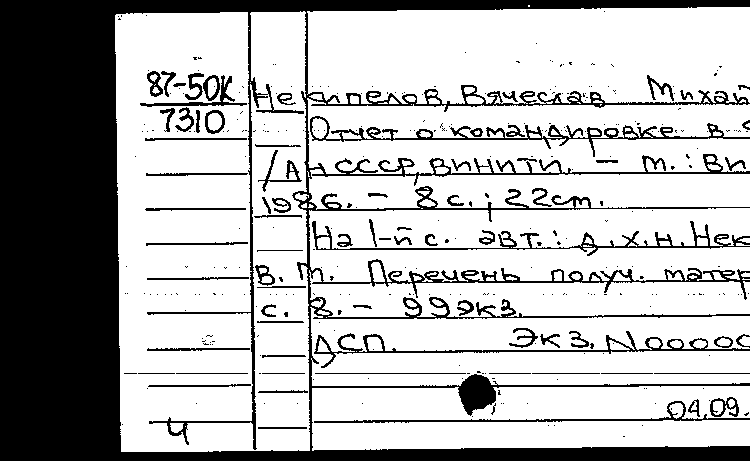 87-50К Некипелов, Вячеслав Михай
7310 Отчет о командировке в
/АН СССР, ВИНИТИ. - М.: ВИ
1986. - 8 с.; 22 см.
На 1-й с. авт.: д.х.н. Нек
В. М. Перечень получ. матер
с. 8. - 99 экз.
ДСП. Экз. N00000
04.09.
4